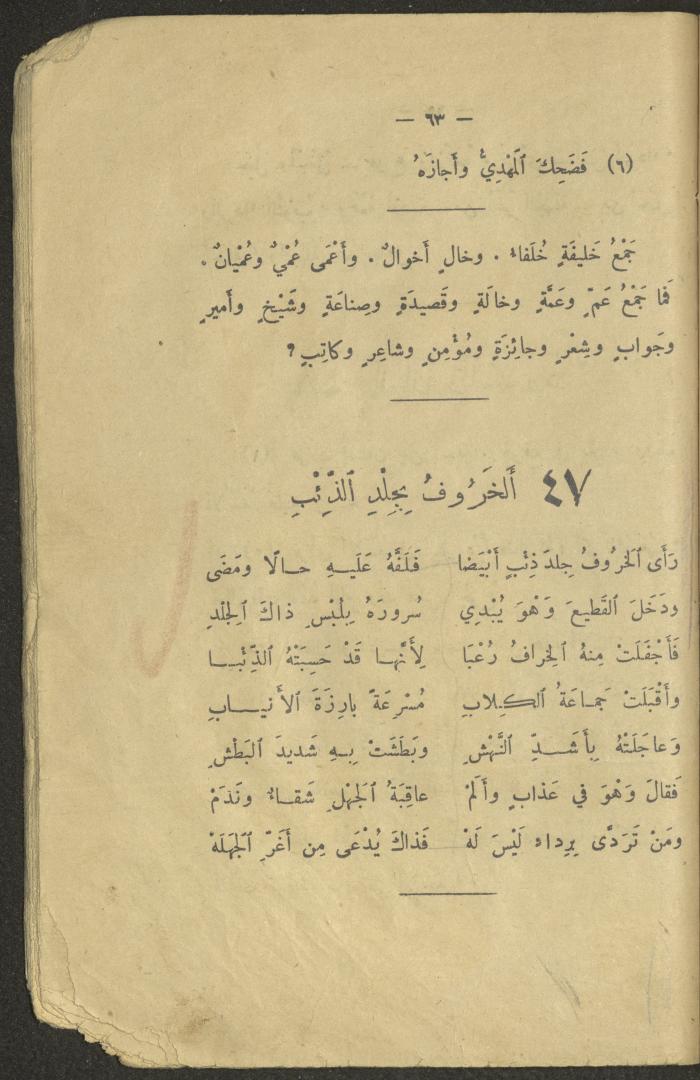 — ٦٣ —
(٦) فَضَحِكَ ٱلْمَهْدِيُّ وأَجازَهُ
جَمْعُ خَليفَةٍ خُلَفاءُ . وخالٍ أَخوالٌ . وأَعْمَى عُمْيٌ وعُمْيانٌ .
فَما جَمْعُ عَمٍّ وعَمَّةٍ وخالَةٍ وقَصيدَةٍ وصِناعَةٍ وشَيْخٍ وأَميرٍ
وجَوابٍ وشِعْرٍ وجائِزَةٍ ومُؤْمِنٍ وشاعِرٍ وكاتِبٍ ؟
٤٧ أَلخَرُوفُ بِجِلْدِ ٱلذِّئْبِ
رَأَى ٱلخَرُوفُ جِلدَ ذِئْبٍ أَبْيَضَا فَلَفَّهُ عَلَيهِ حالًا ومَضَى
ودَخَلَ ٱلقَطيعَ وَهْوَ يُبْدِي سُرورَهُ بِلُبْسِ ذاكَ ٱلجِلْدِ
فَأَجْفَلَتْ مِنهُ ٱلخِرافُ رُعْبَا لِأَنَّها قَدْ حَسِبَتْهُ ٱلذِّئْبا
وأَقْبَلَتْ جَماعَةُ ٱلكِلابِ مُسْرِعَةً بارِزَةَ ٱلأَنيابِ
وَعاجَلَتْهُ بِأَشَدِّ ٱلنَّهْشِ وبَطَشَتْ بِهِ شَديدَ ٱلبَطْشِ
فَقالَ وَهْوَ في عَذابٍ وأَلَمْ عاقِبَةُ ٱلجَهْلِ شَقاءٌ ونَدَمْ
ومَنْ تَرَدَّى بِرِداءٍ لَيْسَ لَهْ فَذاكَ يُدْعَى مِن أَغَرِّ ٱلجَهَلَهْ